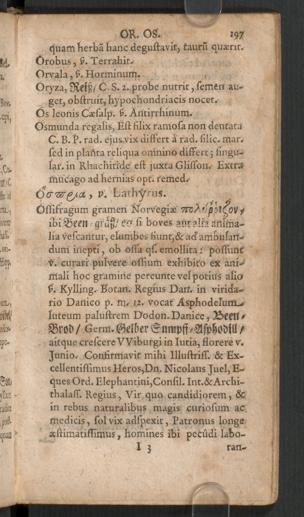 OR. OS. 197
quam herbâ hanc degustavit, taurũ quærit.
Orobus, v. Terrahit.
Orvala, v. Horminum.
Oryza, Reiß/ C. S. 2. probe nutrit, semen auget,
obstruit, hypochondriacis nocet.
Os leonis Cæsalp. v. Antirrhinum.
Osmunda regalis, Est filix ramosa non dentata
C. B. P. rad. ejus vix differt â rad. filic. mar.
sed in planta reliqua omnino differt; singulaf.
in Rhachitide est juxta Glisson. Extra
mucago ad hernias opt. remed.
v. Lathyrus.
Ossifragum gramen Norvegiæ
ibi Been gräß/ eo si boves aut alia animalia
vescantur, elumbes fiunt, & ad ambulandum
inepti, ob ossa qs. emollita: possunt
v. curari pulvere ossium exhibito ex animali
hoc gramine pereunte vel potius alio
v. Kylling. Botan. Regius Dan. in viridario
Danico p. m. 12. vocat Asphodelum
luteum palustrem Dodon. Danice, Been-
Brod/ Germ. Gelber Sumpff-Asphodil/
aitque crescere VViburgi in Iutia, florere v.
Junio. Confirmavit mihi Illustriss. & Excellentissimus
Heros, Dn. Nicolaus Juel, Eques
Ord. Elephantini, Consil. Int. & Archithalass.
Regius, Vir quo candidiorem, &
in rebus naturalibus magis curiosum ac
medicis, sol vix adspexit, Patronus longe
æstimatissimus, homines ibi pecudi labo-
I 3 ran-